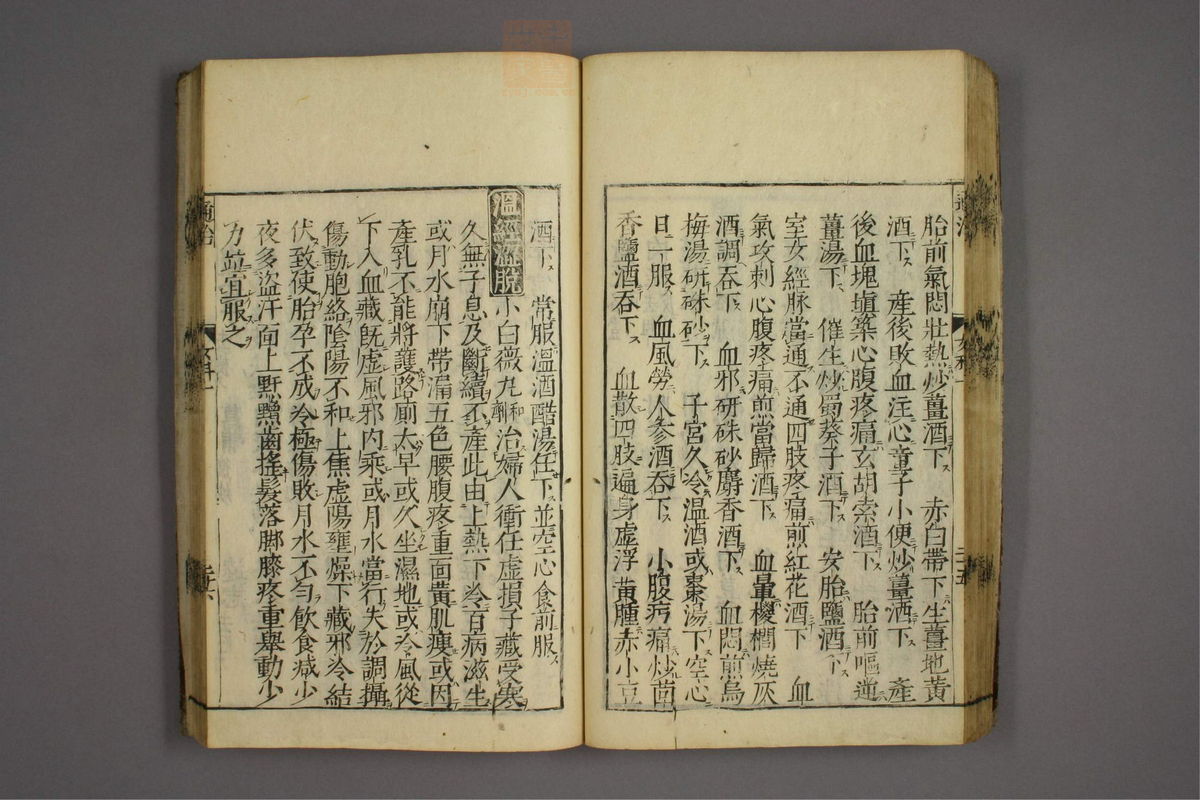 胎前氣悶壯熱炒薑酒下 赤白帶下生薑地黄
酒下 產後敗血注心童子小便炒薑酒下 產
後血塊塡築心腹疼痛玄胡索酒下 胎前嘔逆
薑湯下 催生炒蜀葵子酒下 安胎鹽酒下
室女經脉當通不通四肢疼痛煎紅花酒下 血
氣攻刺心腹疼痛煎當歸酒下 血暈椶櫚燒灰
酒調吞下 血邪研硃砂麝香酒下 血悶煎烏
梅湯研硃砂下 子宮久冷温酒或棗湯下空心
日一服 血風勞人參酒吞下 小腹㽲痛炒茴
香鹽酒吞下 血散四肢遍身虛浮黄腫赤小豆
酒下 常服温酒醋湯任下並空心食前服
温經 脱 小白薇丸 和劑 治婦人衝任虛損子藏受寒
久無子息及斷續不產此由上熱下冷百病滋生
或月水崩下帶漏五色腰腹疼重面黄肌瘦或因
產乳不能將護路厠太早或久坐濕地或冷風從
下入血藏既虛風邪内乘或月水當行失於調攝
傷動胞絡陰陽不和上焦虛陽壅燥下藏邪冷結
伏致使胎孕不成冷極傷敗月水不匀飲食減少
夜多盜汗面上䵟䵳齒搖髮落脚膝疼重舉動少
力並宜服之
通治
女科一
二十六
通治
女科一
二十五